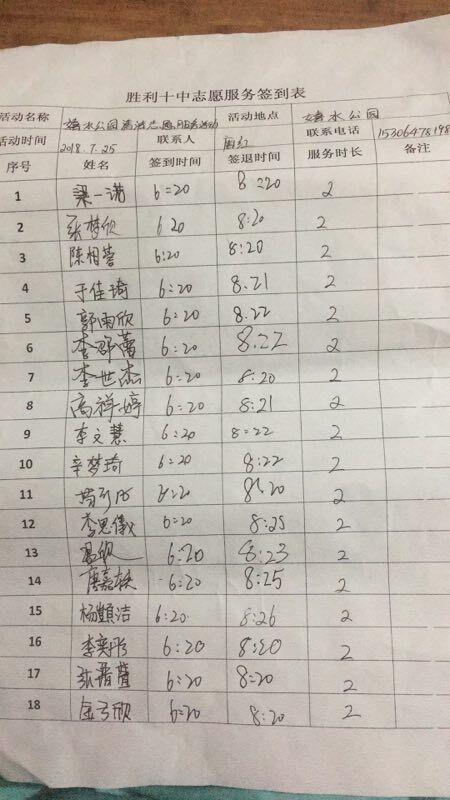 胜利十中志愿服务签到表
活动名称 清洁志愿服务活动 活动地点 公园
活动时间 2018.7.25 联系人 联系电话 15306478198
序号 姓名 签到时间 签退时间 服务时长 备注
1 梁一诺 6:20 8:20 2
2 张梦欣 6 20 8:20 2
3 陈相蓉 6:20 8:20 2
4 于佳琦 6:20 8.21 2
5 郭雨欣 6:20 8.22 2
6 李 蕾 6:20 8.22 2
7 李世杰 6:20 8:20 2
8 高祥婷 6:20 8:21 2
9 李文慧 6:20 8:22 2
10 辛梦琦 6:20 8:22 2
11 6:20 8:20 2
12 李思儀 6:20 8:25 2
13 6:20 8:23 2
14 唐嘉轶 6:20 8:25 2
15 杨 洁 6:20 8:26 2
16 李奕彤 6:20 8:20 2
17 张 萱 6:20 8:20 2
18 金 欣 6:20 8:20 2